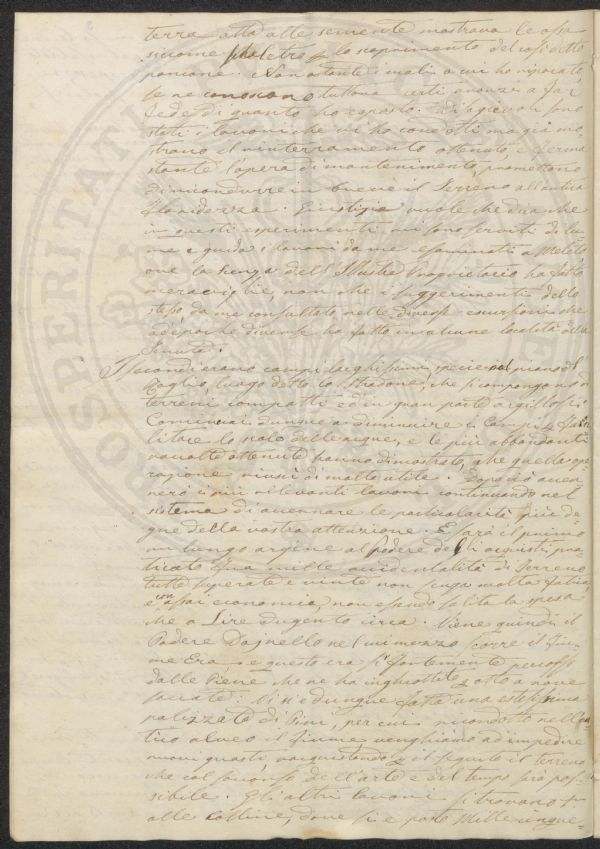 terra atta alle semente mostrava le ossa
siccome scheletro p lo scoprimento del così detto
pancone. Non ostante i mali a cui ho riparato,
se ne conoscano tuttora certi avanzi a far
fede di quanto ho esposto. Ed agevoli sono
stati i lavori che vi ho condotti ma già mo-
strano il rinterramento ottenuto, e ser
stante l'opera di mantenimento, promettono
di ricondurre in breve il Terreno all'antica
floridezza. Giustizia vuole che dica che
in questi esperimenti mi sono serviti di lu-
me e guida i lavori da me esaminati a Meleto
ove la scienza dell'Illustre Proprietario ha fatto
meraviglie, non che i suggerimenti dello
stesso da me consultato nelle diverse escursioni che
ad epoche diverse ha fatto in alcune località della
Tenuta.
I secondi erano campi larghissimi specie nel piano del
Roglio, luogo detto lo Stradone, che si compongono di
terreni compatti ed in gran parte argillosi.
Cominciai dunque a diminuire i Campi p faci-
litare lo scolo delle acque, e le più abbondanti
raccolte ottenute hanno dimostrato, che quella ope-
razione riuscì di molto utile. Dopo ciò accen-
nerò i più rilevanti lavori continuando nel
sistema di accennare le particolarità più de-
gne della vostra attenzione. E sarà il primo
un lungo argine al podere degli acquisti pra-
ticato fra mille accidentalità di terreno
tutte superate e vinte non senza molta fatica,
e con assai economia, non essendo salita la spesa
che a Lire dugento circa. Viene quindi il
Podere Dagnello nel cui mezzo scorre il Fiu-
me Era, e questo era sì fortemente percosso
dalle Piene che ne ha inghiottite otto a nove
saccate. Vi si è dunque fatta una estesissima
palizzata di Pini, per cui ricondotto nell'An-
tico alveo il fiume venghiamo ad impedire
nuovi guasti racquistando in seguito il terreno
che col soccorso dell'arte e del tempo sarà pos-
sibile. Gli altri lavori si trovano
alle colline, dove si è posto Mille cinque-